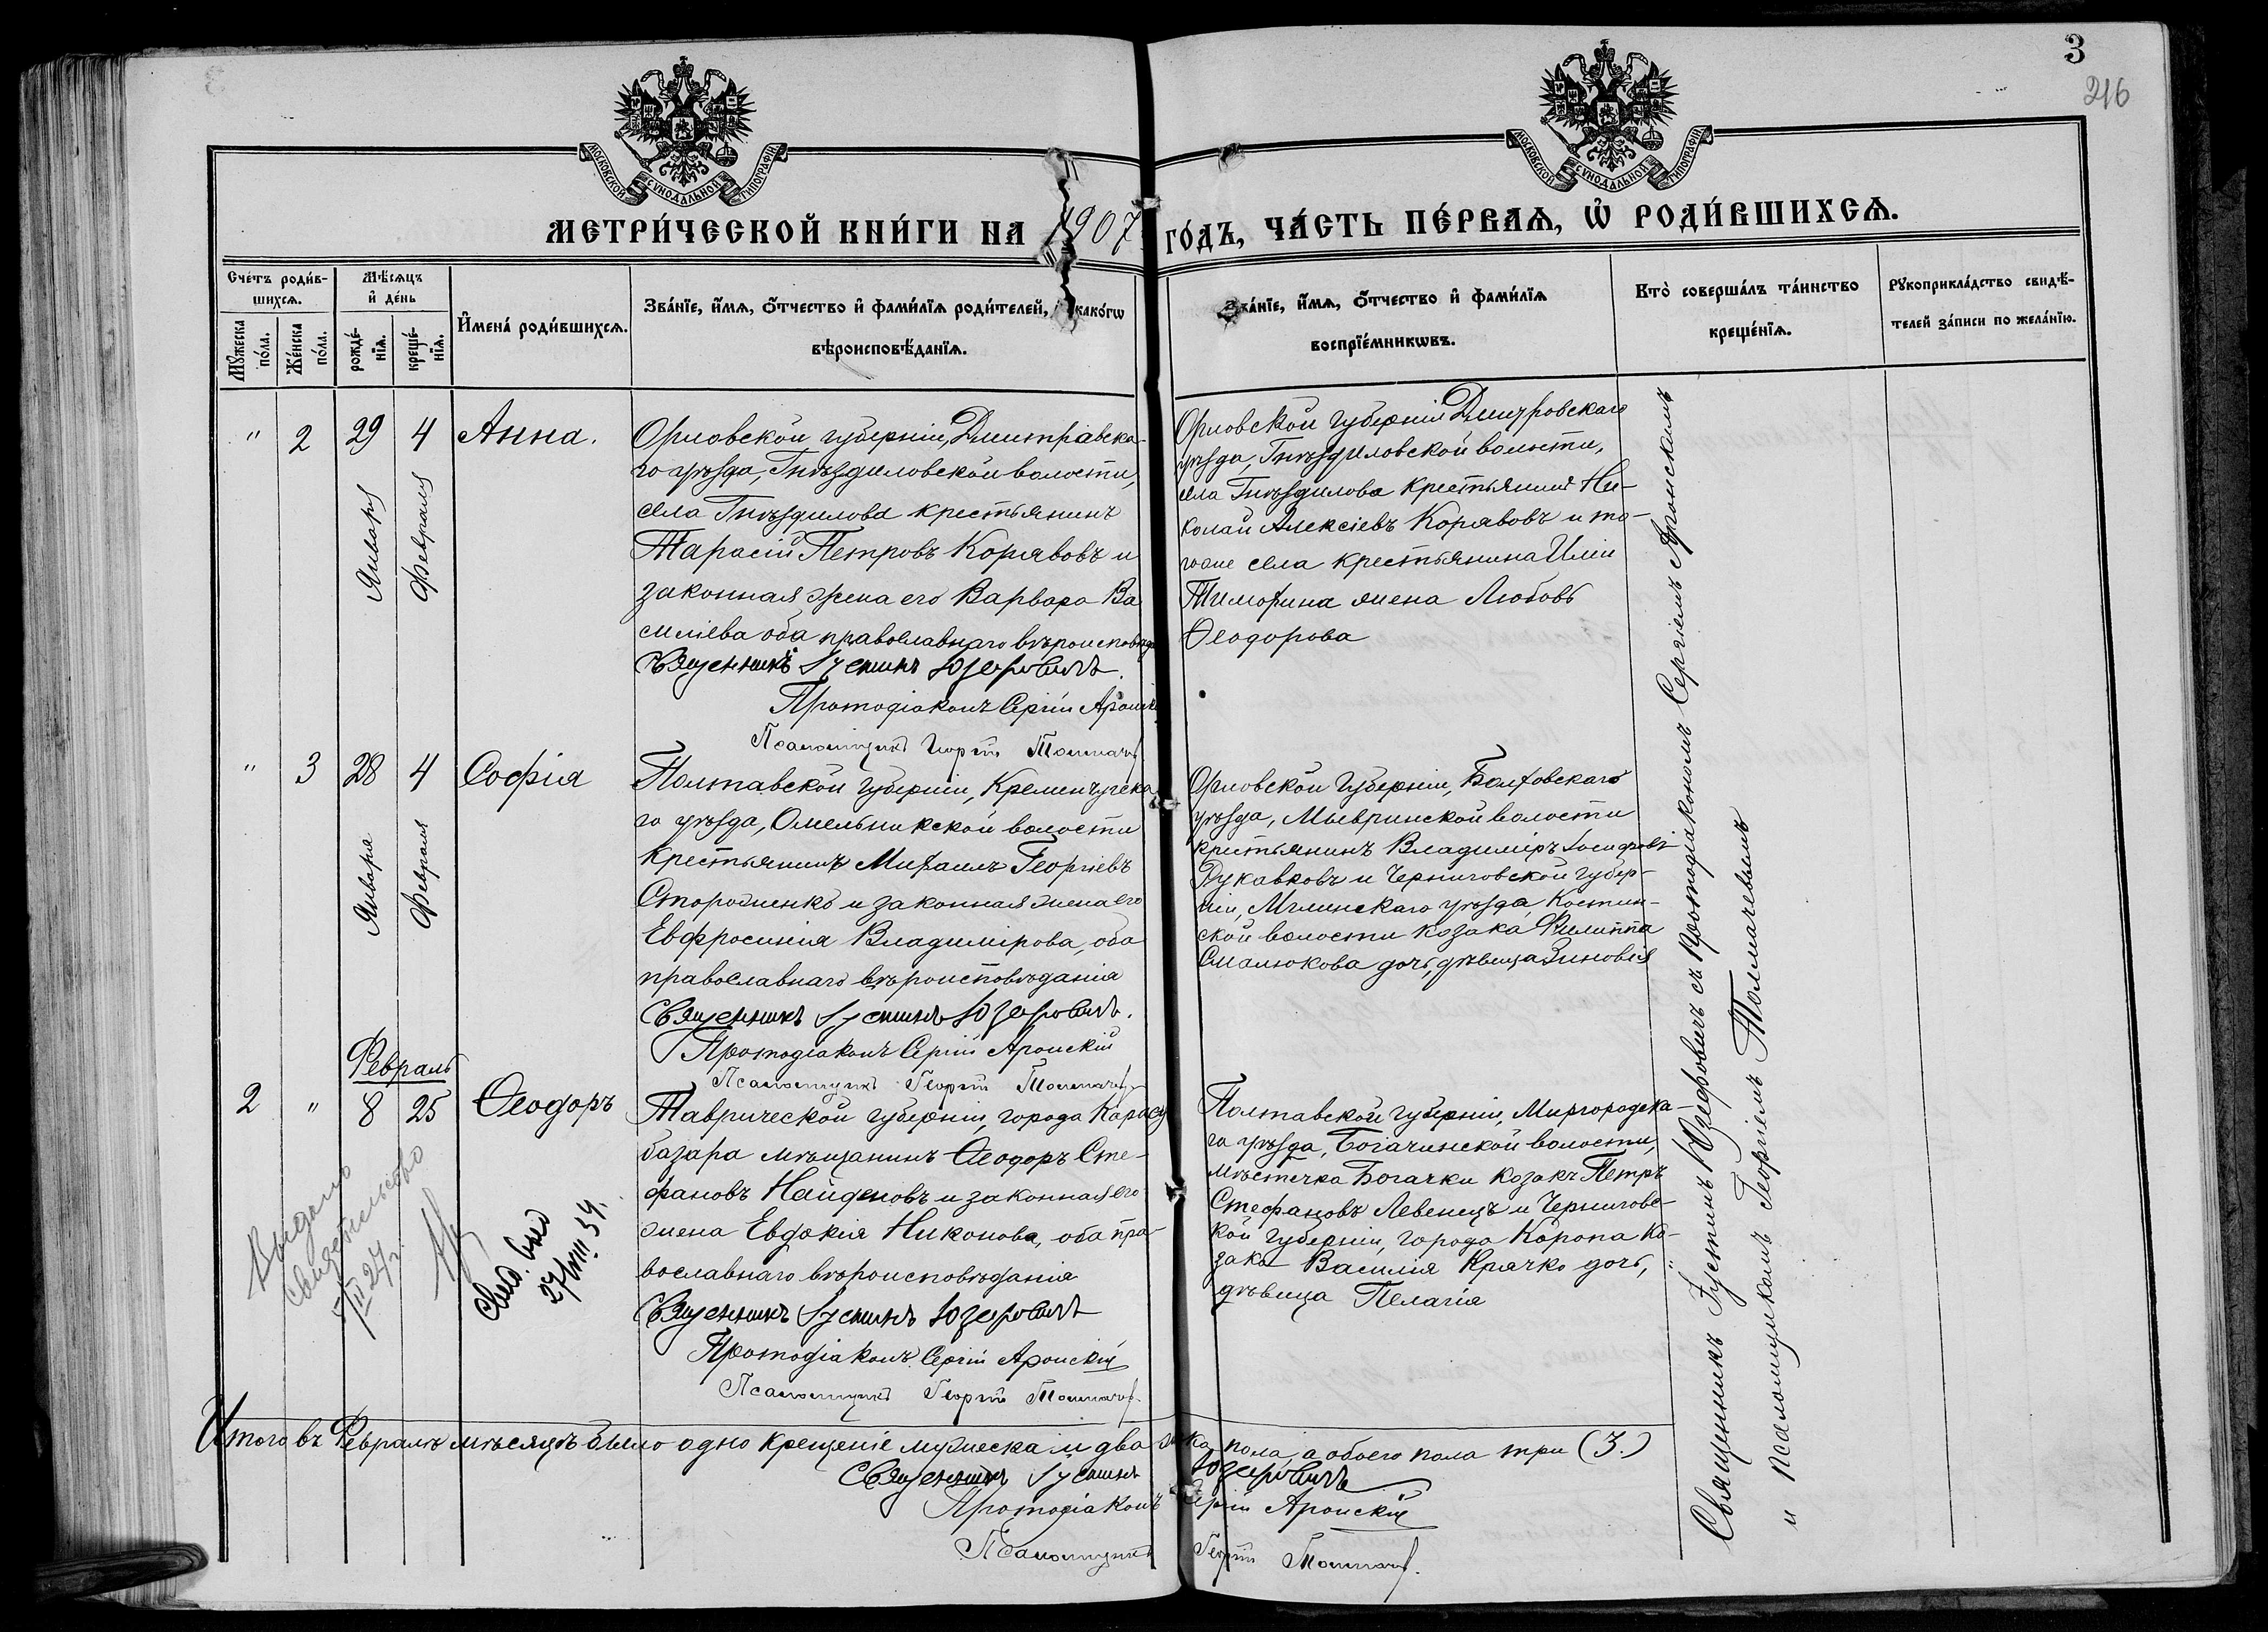 3
216
МОСКОВСКОЙ СѴНОДАЛЬНОЙ ТИПОГРАФІИ
МОСКОВСКОЙ СѴНОДАЛЬНОЙ ТИПОГРАФІИ
МЕТРИ́ЧЕСКОЙ КНИ́ГИ НА 1907 ГО́ДЪ, ЧА́СТЬ ПЕ́РВАѦ, Ѡ҆ РОДИ́ВШИХСѦ.
Сче́тъ роди́в-
шихсѧ.
Мꙋ́жеска по́ла.
Же́нска по́ла.
Мѣ́сѧцъ
и҆ де́нь
рожде́-
нїѧ.
креще́-
нїѧ.
И҆мена̀ роди́вшихсѧ.
Зва́нїе, и҆́мѧ, ѻ҆́тчество и҆ фами́лїѧ роди́телей, и҆ како́гѡ
вѣроисповѣ́данїѧ.
Зва́нїе, и҆́мѧ, ѻ҆́тчество и҆ фами́лїѧ
воспрїе́мникѡвъ.
Кто̀ соверша́лъ та́инство
креще́нїѧ.
Рꙋкоприкла́дство свидѣ́-
телей за́писи по жела́нїю.
" 2 29 4 Анна.
Января
Февраля
Орловской губерніи, Дмитріавска-
го уѣзда, Гнѣздиловской волости,
села Гнѣздилова крестьянинъ
Тарасій Петровъ Корявовъ и
законная жена его Варвара Ва
силіева оба православнаго вѣроисповѣд
Священникъ Іустинъ Юзефовичъ.
Протодіаконъ Сергій Аронскі
Псаломщикъ Георгій Толмачев
Орловской губерніи Дмитровскаго
уѣзда, Гнѣздиловской волости,
села Гнѣздилова крестьянинъ Ни-
колай Алексіевъ Корявовъ и то-
гоже села крестьянина Иліи
Тимофина жена Любовь
Ѳеодорова
" 3 28 4 Софія
Января
Февраля
Полтавской губерніи, Кременчугска
го уѣзда, Омельникской волости
крестьянинъ Михаилъ Георгіевъ
Стороженко и законная жена его
Евфросинія Владимірова, оба
православнаго вѣроисповѣданія
Священникъ Іустинъ Юзефовичъ.
Протодіаконъ Сергій Аронскій
Псаломщикъ Георгій Толмачев
Орловской губерніи, Болховскаго
уѣзда, Мывринской волости
крестьянинъ Владиміръ Іосифовъ
Рукавковъ и Черниговской губер-
ніи, Мглинскаго уѣзда, Костин-
ской волости козака Филиппа
Смалюкова дочь, дѣвица Зиновія
Февраль
2 " 8 25 Ѳеодоръ
Таврической губерніи, города Карасу
базара мѣщанинъ Ѳеодоръ Сте-
фановъ Найденовъ и законная его
жена Евдокія Никонова, оба пра-
вославнаго вѣроисповѣданія
Священникъ Іустинъ Юзефовичъ
Протодіаконъ Сергій Аронскій
Псаломщикъ Георгій Толмачев
Полтавской губерніи, Миргородска-
го уѣзда, Богачинской волости,
мѣстечка Богачки козакъ Петръ
Стефановъ Левенецъ и Черниговс-
кой губерніи, города Коропа ко-
зака Василія Крячко дочь,
дѣвица Пелагія
Выдано
свидетельство
Свид. выд
27/VIII 34.
Священникъ Іустинъ Юзефовичъ съ Протодіакономъ Сергіемъ Аронскимъ
и псаломщикомъ Георгіемъ Толмачевымъ
Итого въ Февралѣ мѣсяцѣ было одно крещеніе мужеска и два ж-ка пола, а обоего пола три (3.)
Священникъ Іустинъ Юзефовичъ
Протодіаконъ Сергій Аронскій
Псаломщикъ Георгій Толмачев.